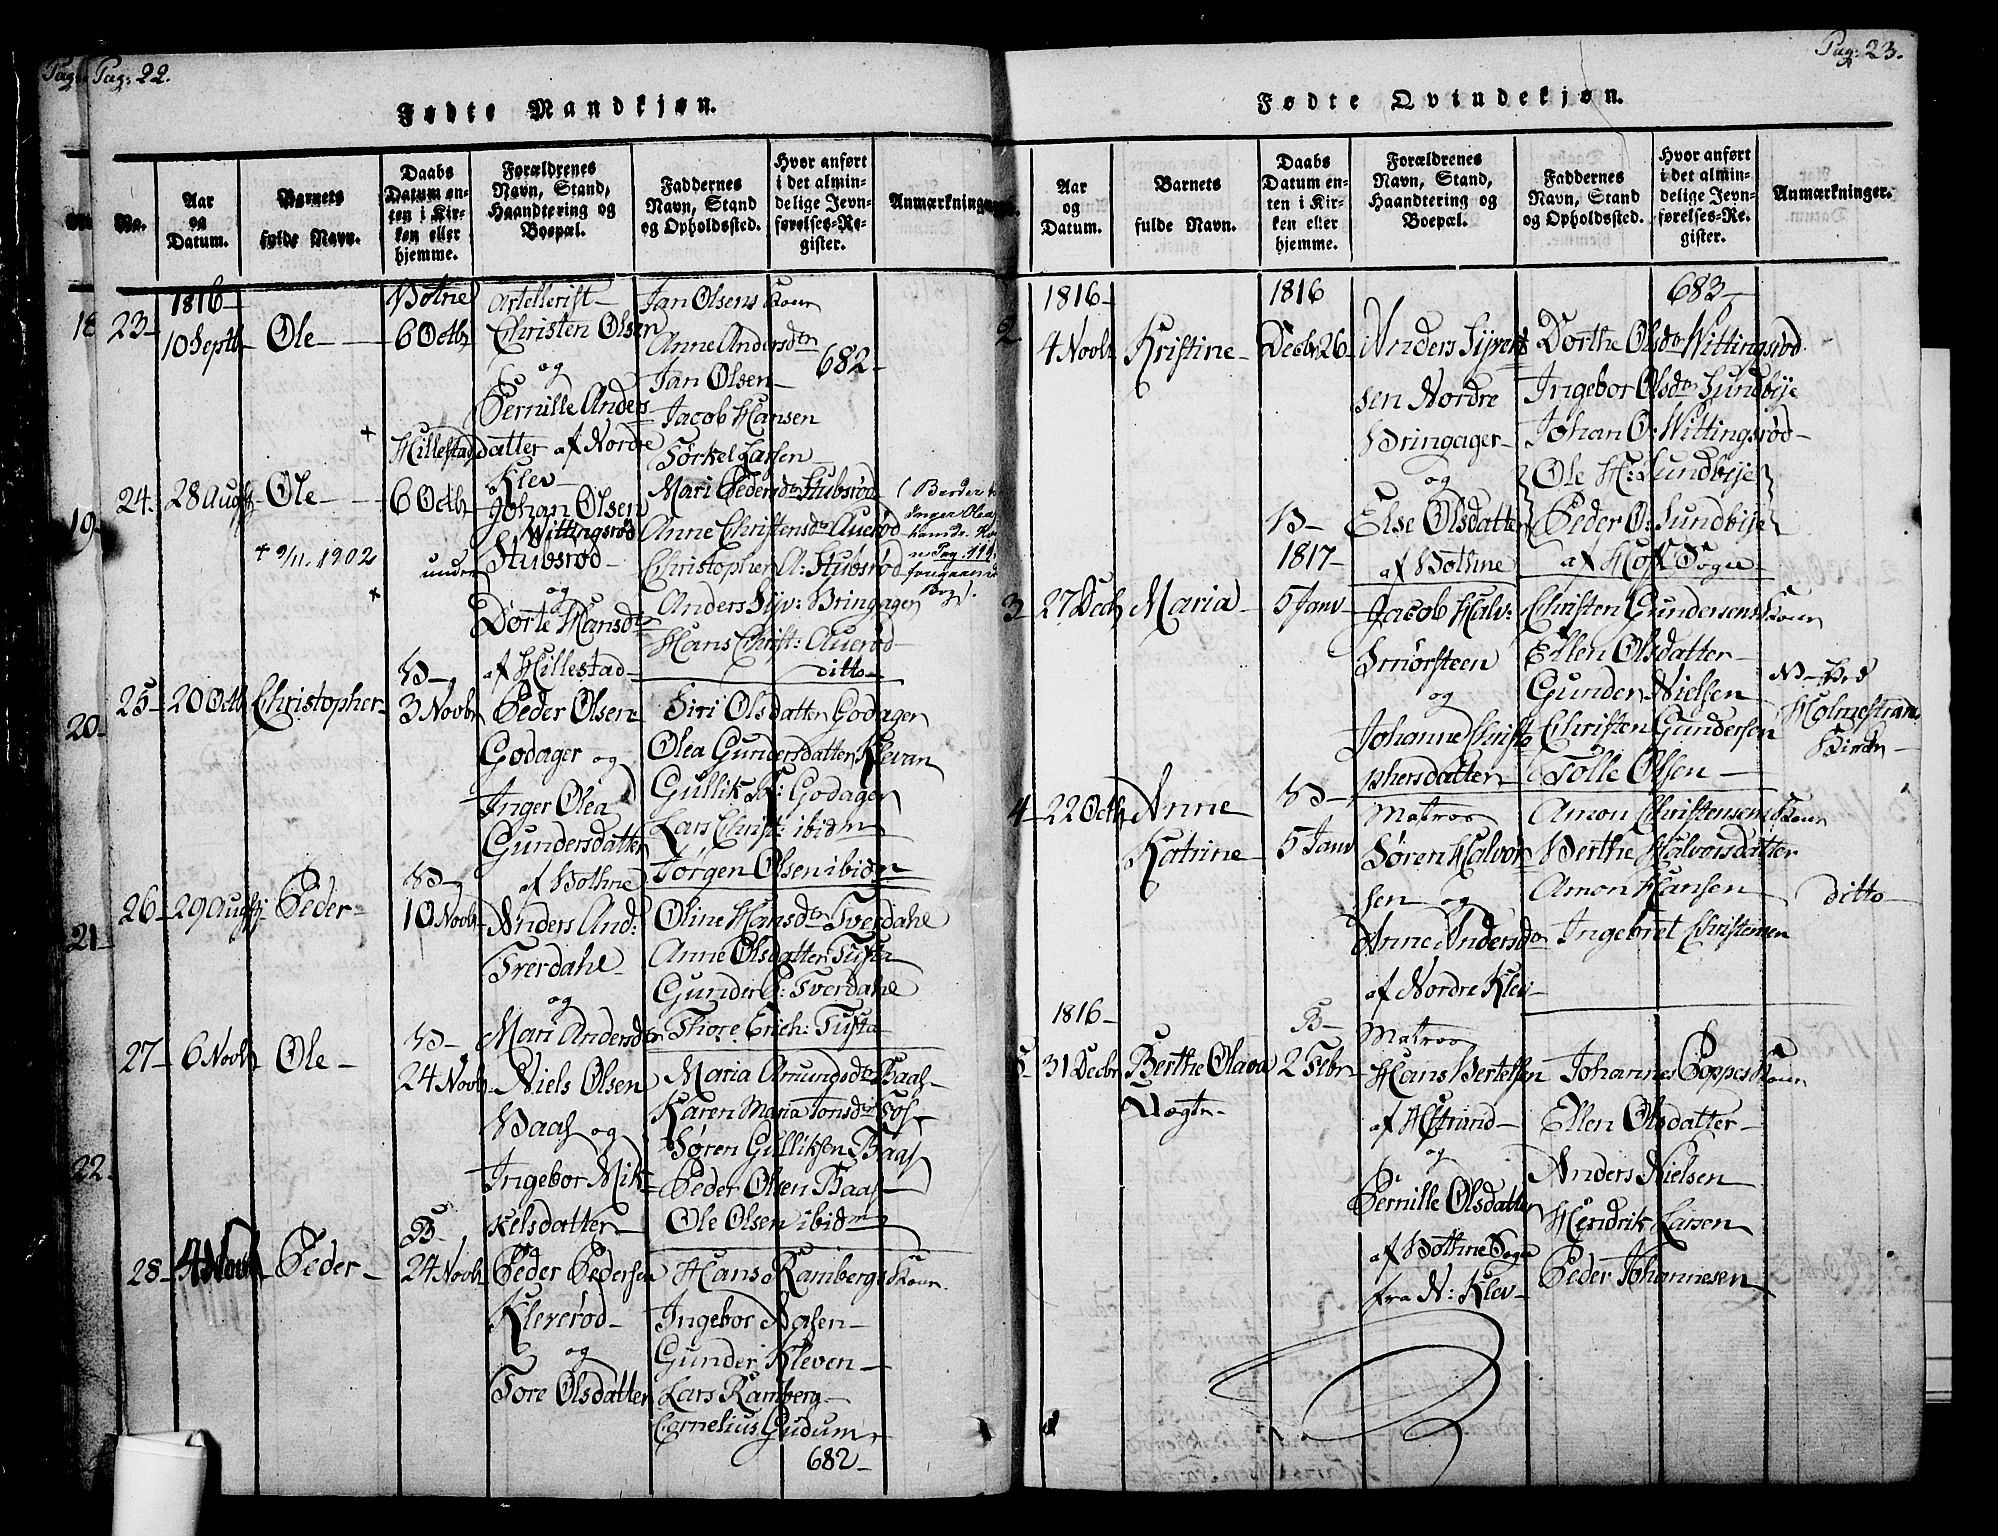 Pag: 22.
Fødte Mandkjøn.
No.
Aar og Datum.
Barnets fulde Navn.
Daabs Datum enten i Kirken eller hjemme.
Forældrenes Navn, Stand, Haandtering og Boepæl.
Faddernes Navn, Stand og Opholdssted.
Hvor anført i det almindelige Jevnførelses-Register.
Anmærkninger.
18
19
20
21
22
23
1816
10 Septb
Ole
Botne
6 Octb
Artellerist
Christen Olsen
og
Pernille Anders
datter af Nordre
Klev
Jan Olsens Kone
Anne Andersdtr
Jan Olsen
Jacob Hansen
Torkel Larsen
682
24.
28 Augst
Ole
+ 9/11. 1902
Hillestad
6 Octb
under
Johan Olsen
Wittingsrød
Stubsrød
og
Dorte Hansd
af Hillestad
Mari Pedersdtr Stubsrød
Anne Christensdtr Auerød
Christopher A: Stubsrød
Anders Syv: Bringager
Hans Christ: Auerød
ditto
25
20 Octb
Christopher
B
3 Novbr
Peder Olsen
Godager og
Inger Olea
Gundersdatter
af Bothne
Siri Olsdatter Godager
Olea Gundersdatter Klevan
Gullik H: Godager
Lars Christ: ibidm
Jørgen Olsen ibidm
26
29 Augst
Peder
B
10 Novb
Anders And:
Tverdahl
og
Mari Andersdtr
Oline Hansdtr Tverdahl
Anne Olsdatter Tufta
Gunder P: Tverdahl
Thore Erich: Tufta
27
6 Novb
Ole
B
24 Novb
Niels Olsen
Baas og
Ingebor Mik
kelsdatter
Maria Amundsdtr Baas
Karen Maria Tonsdtr Fos
Søren Gulliksen Baas
Peder Olsen Baas
Ole Olsen ibidm
28
4 Novb
Peder
B
24 Novb
Peder Pedersen
Kleverød
og
Tore Olsdatter
Hans Rambergs Kone
Ingebor Aasen
Gunder Kleven
Lars Ramberg
Cornelius Gudum
682
Pag: 23.
Fødte Qvindekjøn.
Aar og Datum.
Barnets fulde Navn.
Daabs Datum enten i Kirken eller hjemme.
Forældrenes Navn, Stand, Haandtering og Boepæl.
Faddernes Navn, Stand og Opholdssted.
Hvor anført i det almindelige Jevnførelses-Register.
Anmærkninger.
2
1816
4 Novb
Kristine
1816
Decbr 26
Anders Syvert
sen Nordre
Bringager
og
Else Olsdatter
af Bothne
683
Dorthe Olsdtr Wittingsrød
Ingebor Olsdtr Sundbye
Johan O: Wittingsrød
Ole H: Sundbye
Peder O: Sundbye
af Hof Sogn
3
27 Decb
Maria
B
1817
5 Janv
Jacob Halv:
Smörsteen
og
Johanne Christo
phersdatter
Christen Gundersens Kone
Ellen Olsdatter
Gunder Nielsen
Christen Gundersen
Tolle Olsen
4
22 Octb
Anne
Katrine
B
5 Janv
Matros
Søren Halvor
sen og
Anne Andersdtr
af Nordre Klev
Amon Christensens Kone
Berthe Halvorsdatter
Amon Hansen
Ingebret Christensen
ditto
5
1816
31 Decbr
Berthe Olava
Uægte
B
2 Febr
Matros
Hans Bertelsen
af HStrand
og
Pernille Olsdatter
af Bothne Sogn
fra N: Klev
Johannes Poppes Kone
Ellen Olsdatter
Anders Nielsen
Hendrik Larsen
Peder Johannesen